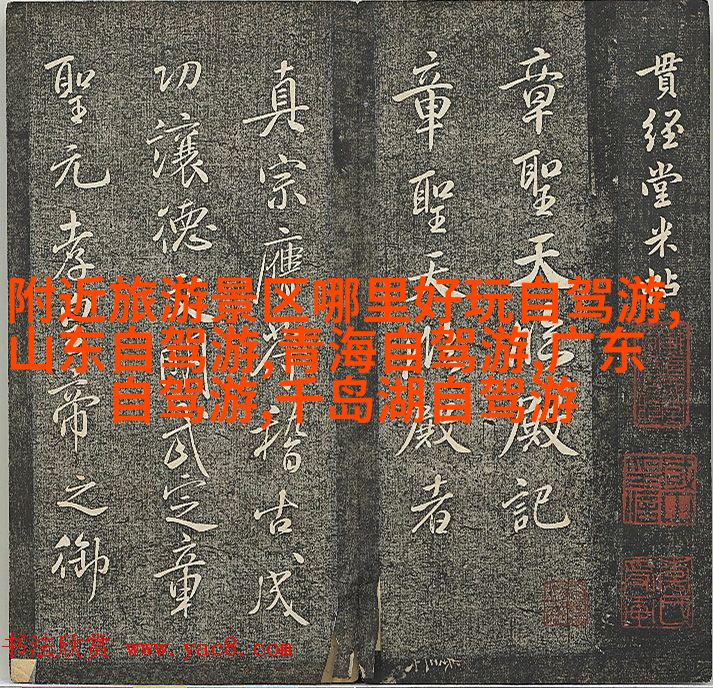 贯经堂米帖
章聖天臨殿記
章聖天臨殿者
真宗膺符稽古戊
功讓德
聞式定章
聖元孝皇帝之御
附近旅游景区哪里好玩自驾游,
山东自驾游,青海自驾游,广东
自驾游,千岛湖自驾游
书法欣赏 www.yac8.com